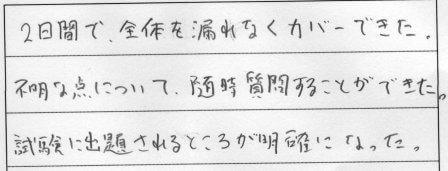 2日間で、全体を漏れなくカバーできた。
不明な点について、随時質問することができた。
試験に出題されるところが明確になった。